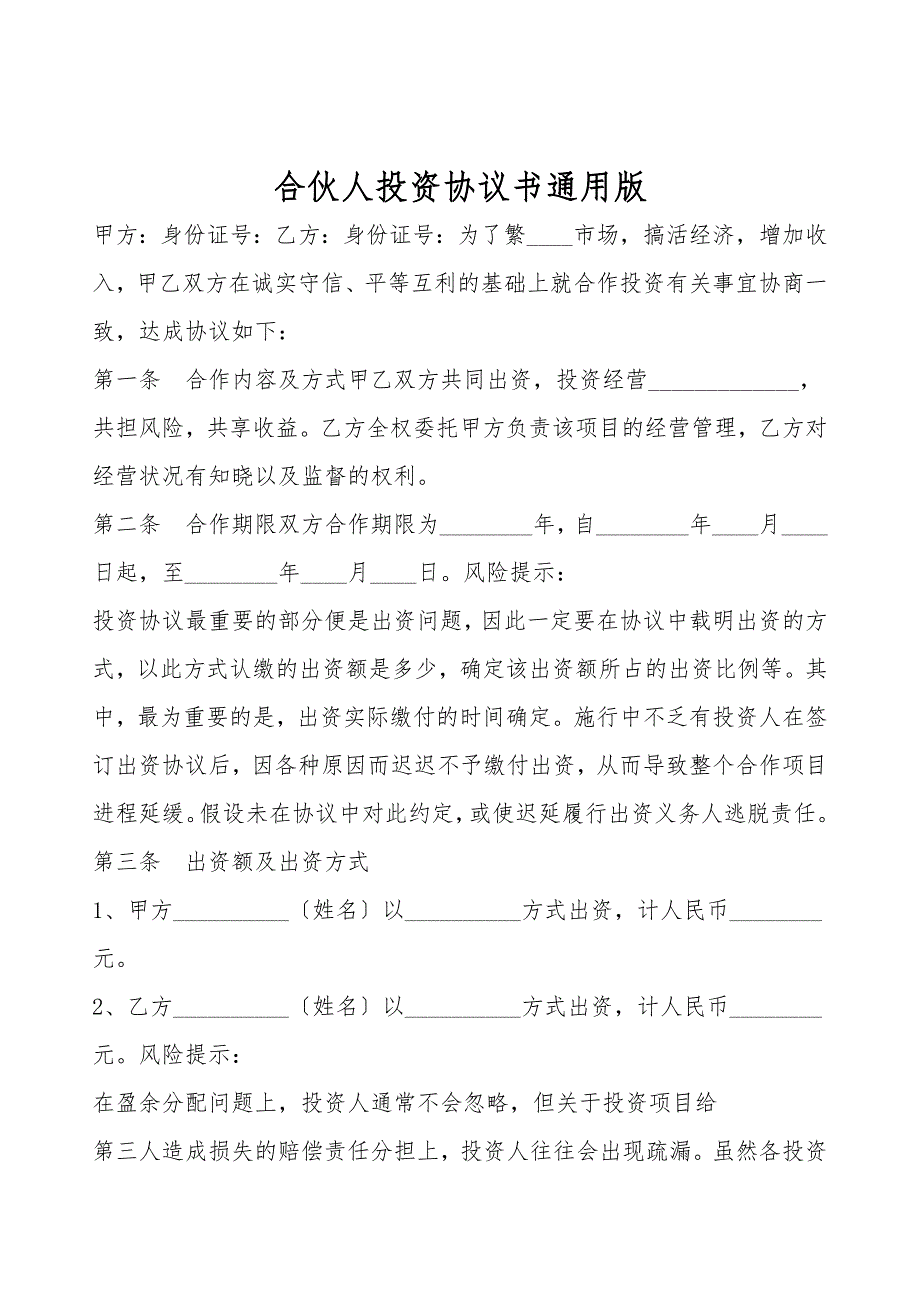 合伙人投资协议书通用版
甲方：身份证号：乙方：身份证号：为了繁____市场，搞活经济，增加收
入，甲乙双方在诚实守信、平等互利的基础上就合作投资有关事宜协商一
致，达成协议如下：
第一条　合作内容及方式甲乙双方共同出资，投资经营_____________，
共担风险，共享收益。乙方全权委托甲方负责该项目的经营管理，乙方对
经营状况有知晓以及监督的权利。
第二条　合作期限双方合作期限为________年，自________年____月____
日起，至________年____月____日。风险提示：
投资协议最重要的部分便是出资问题，因此一定要在协议中载明出资的方
式，以此方式认缴的出资额是多少，确定该出资额所占的出资比例等。其
中，最为重要的是，出资实际缴付的时间确定。施行中不乏有投资人在签
订出资协议后，因各种原因而迟迟不予缴付出资，从而导致整个合作项目
进程延缓。假设未在协议中对此约定，或使迟延履行出资义务人逃脱责任。
第三条　出资额及出资方式
1、甲方__________〔姓名〕以__________方式出资，计人民币________
元。
2、乙方__________〔姓名〕以__________方式出资，计人民币________
元。风险提示：
在盈余分配问题上，投资人通常不会忽略，但关于投资项目给
第三人造成损失的赔偿责任分担上，投资人往往会出现疏漏。虽然各投资